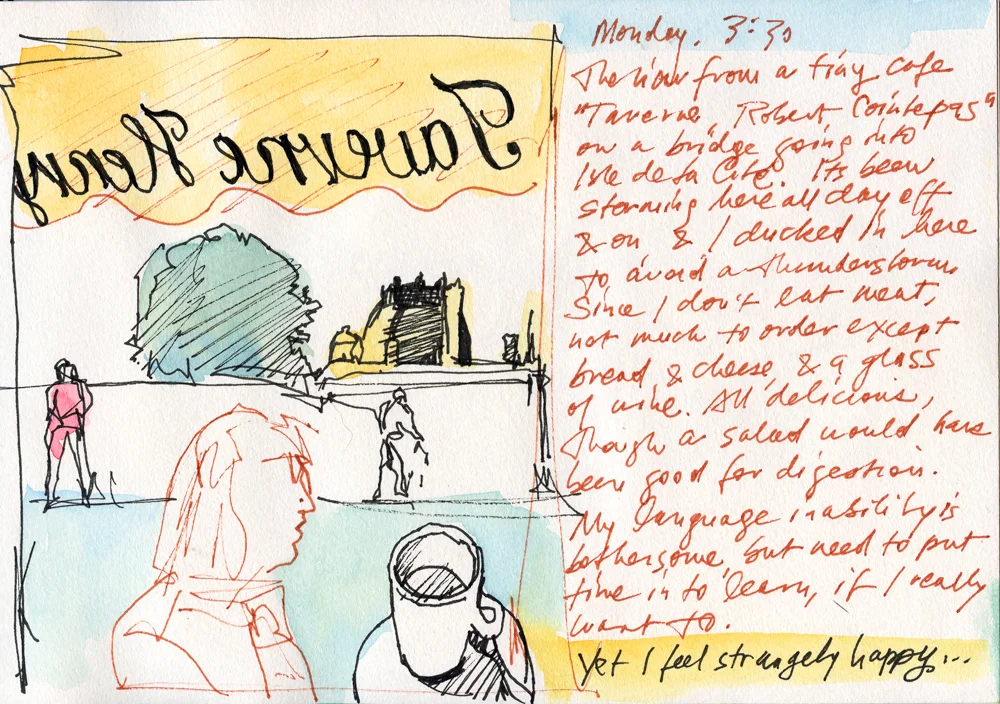 Taverne Henry
Monday. 3:30
The view from a tiny cafe
"Taverne Robert Cointepas"
on a bridge going into
Isle de la Cité. Its been
storming here all day off
& on & I ducked in here
to avoid a thunderstorm.
Since I don't eat meat,
not much to order except
bread & cheese & a glass
of wine. All delicious,
though a salad would have
been good for digestion.
My language inability is
bothersome, but need to put
time in to learn, if I really
want to.
Yet I feel strangely happy...